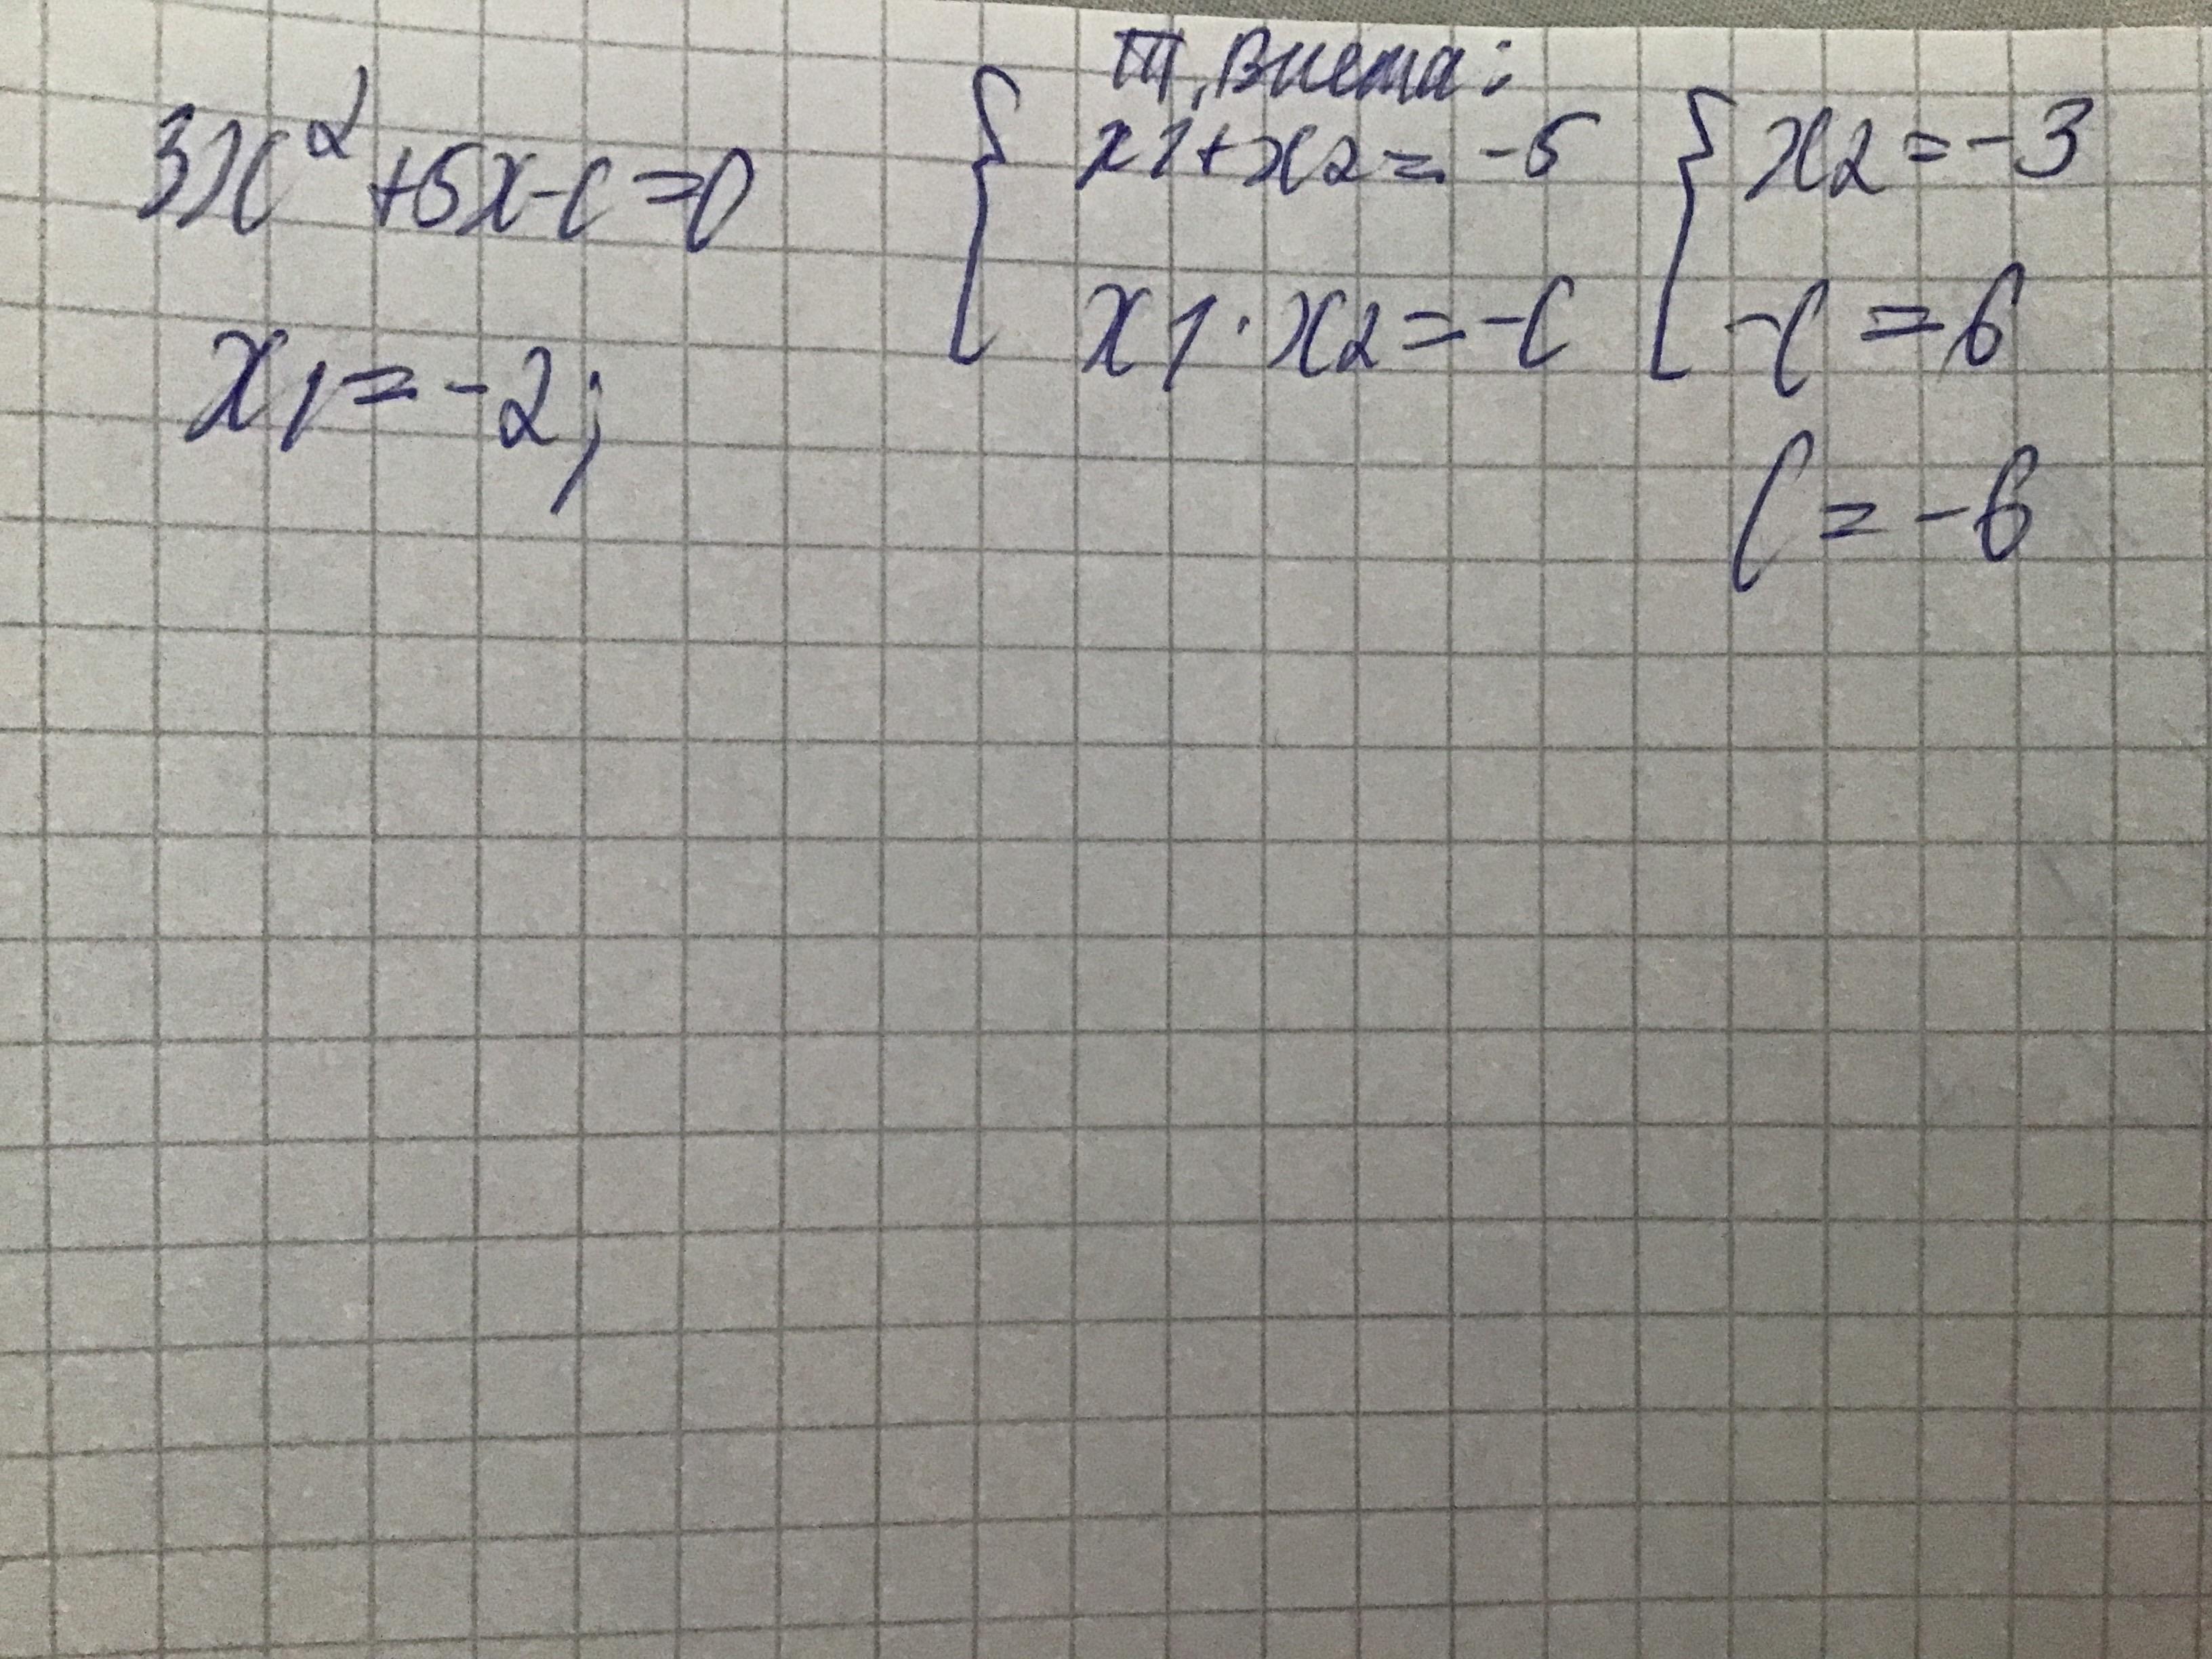 3x² + 5x - c = 0
x1 = -2;
т. Виета:
x1 + x2 = -5
x1 · x2 = -c
x2 = -3
-c = 6
c = -6